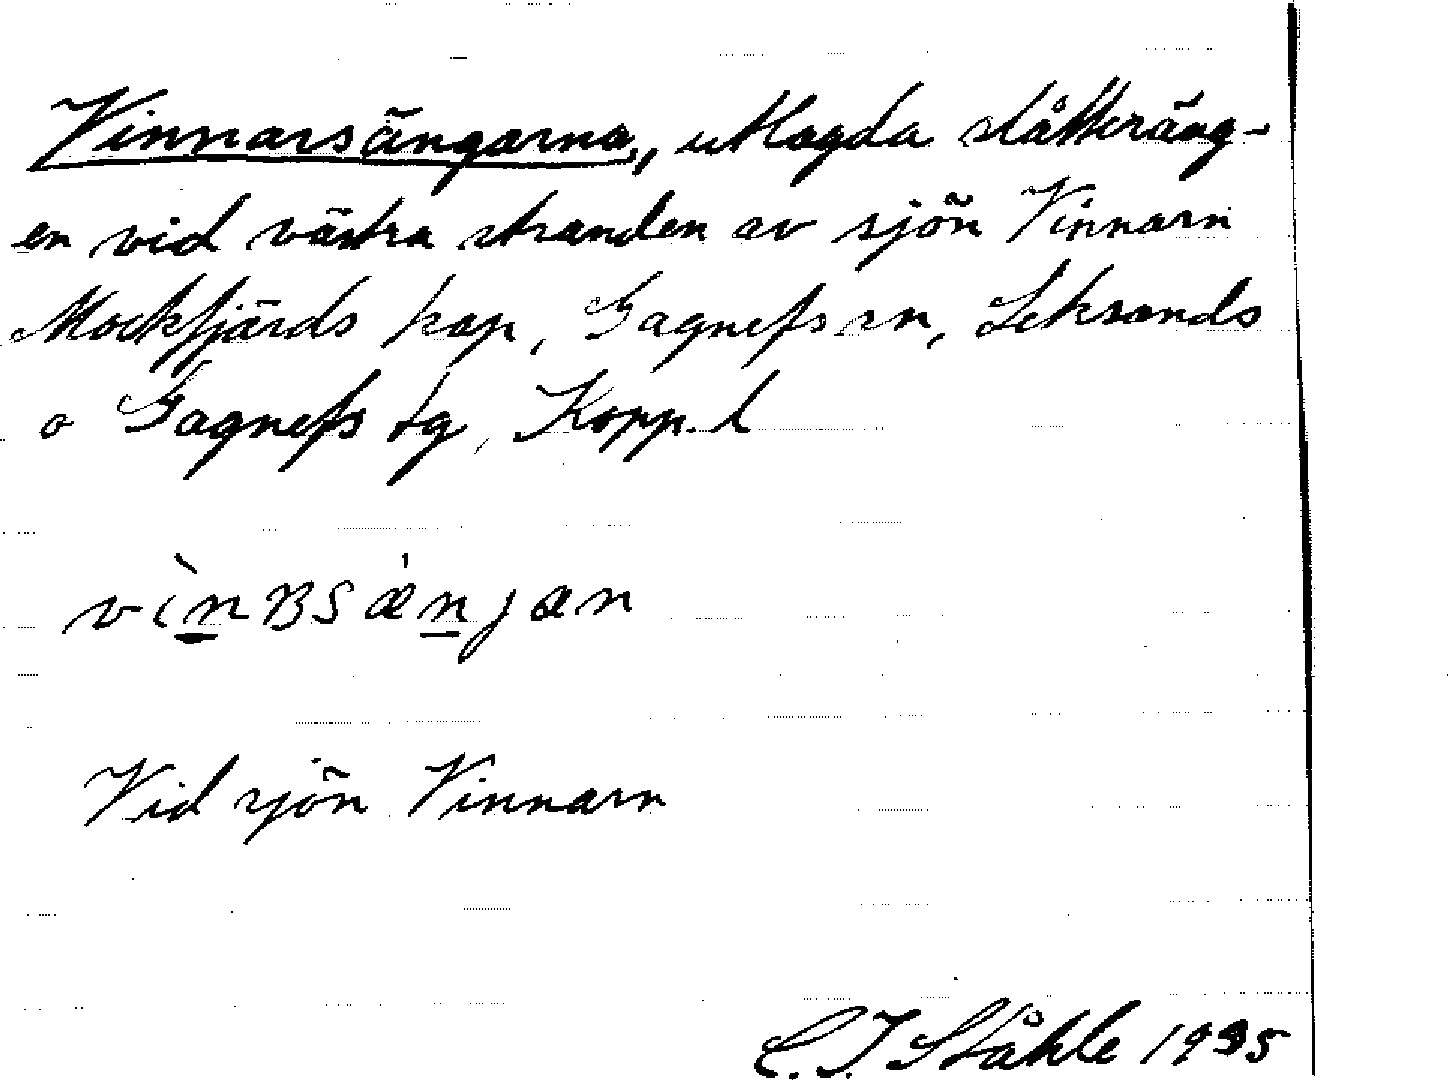 Vinnarsängarna, utlagda slåtteräng-
en vid västra stranden av sjön Vinnarn
Mockfjärds kap, Gagnefs sn, Leksands
o Gagnefs tg, Kopp. l
Vid sjön Vinnarn
C. I. Ståhle 1935